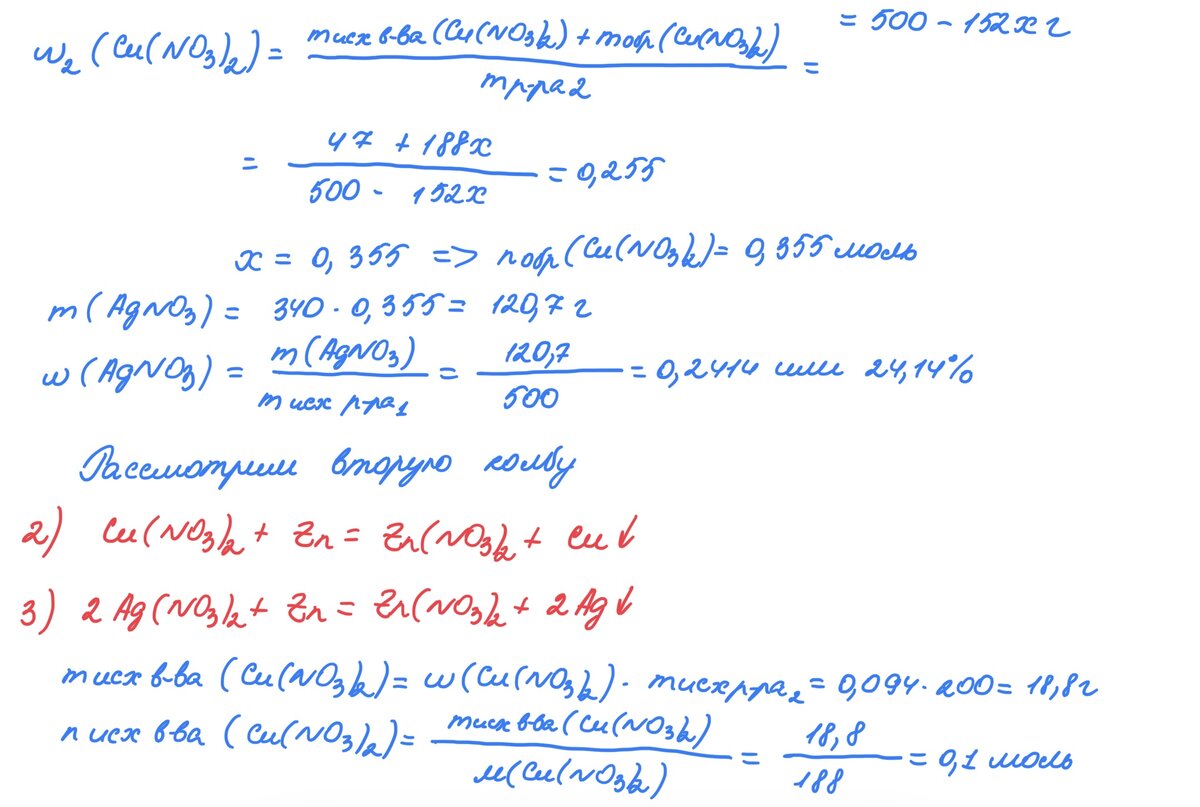 = 500 - 152x г
w₂ (Cu(NO₃)₂) = (mисх в-ва (Cu(NO₃)₂) + mобр (Cu(NO₃)₂)) / mр-ра 2 =
= (47 + 188x) / (500 - 152x) = 0,255
x = 0,355 => nобр (Cu(NO₃)₂) = 0,355 моль
m (AgNO₃) = 340 · 0,355 = 120,7 г
w (AgNO₃) = m (AgNO₃) / mисх р-ра₁ = 120,7 / 500 = 0,2414 или 24,14%
Рассмотрим вторую колбу
2) Cu(NO₃)₂ + Zn = Zn(NO₃)₂ + Cu↓
3) 2 Ag(NO₃)₂ + Zn = Zn(NO₃)₂ + 2 Ag↓
mисх в-ва (Cu(NO₃)₂) = w (Cu(NO₃)₂) · mисх р-ра₂ = 0,094 · 200 = 18,8 г
nисх в-ва (Cu(NO₃)₂) = mисх в-ва (Cu(NO₃)₂) / M(Cu(NO₃)₂) = 18,8 / 188 = 0,1 моль